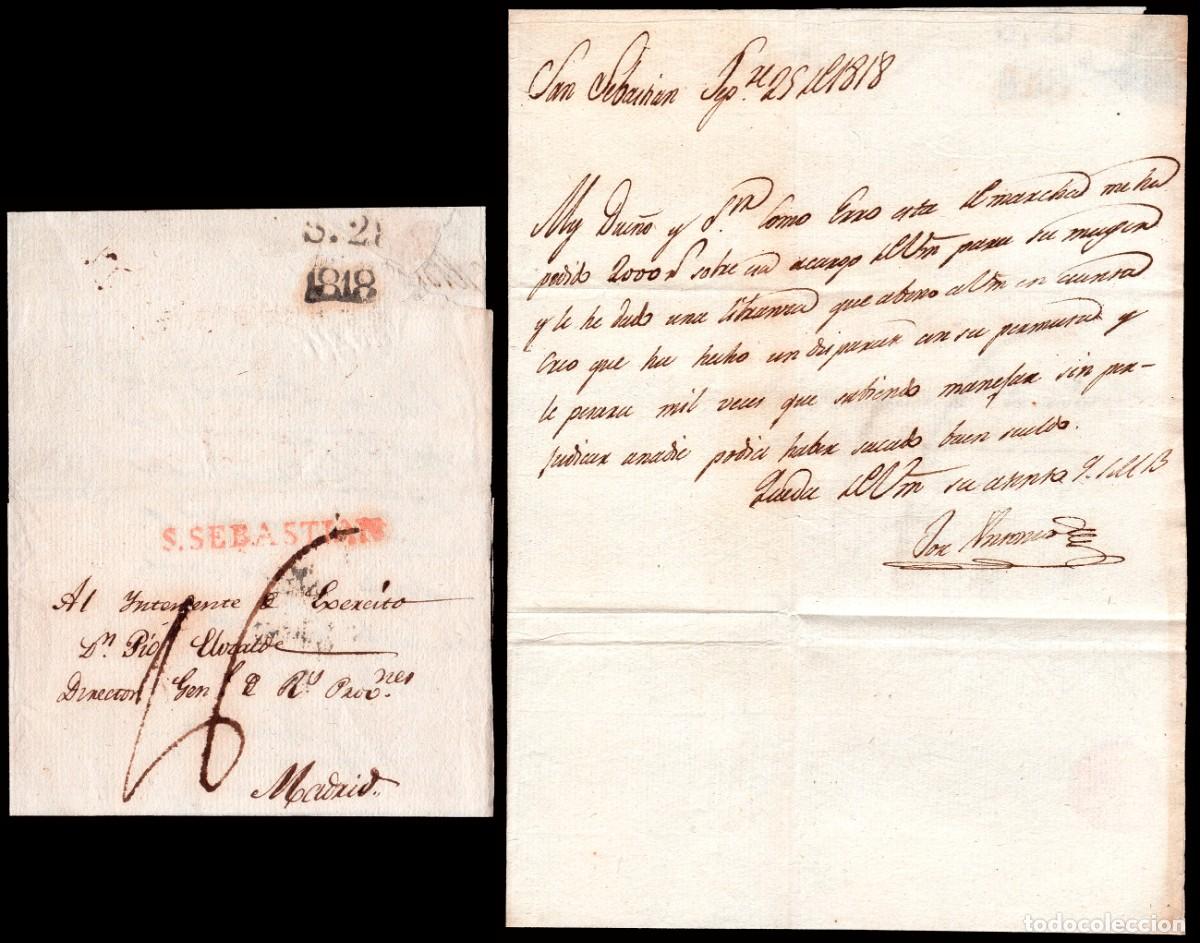 S. 2
1818
S. SEBASTIAN
Al Intendente de Exército
Dn. Pío Elizalde
Director Genl. de Rs. Provnes.
Madrid.
16
San Sebastian Sepre. 25 de 1818
My Dueño y Sr. Como Erro esta de marcha me ha
pedido 2000 rs sobre acargo de Vm para su muger
y le he dado una libranza que abono a Vm en cuenta
Creo que ha hecho un disparar en su permuta y
le pesara mil veces que sabiendo manejar sin per-
judicar anadie podia haber sacado buen sueldo.
Queda de Vm su atento
Antonio
todocoleccion